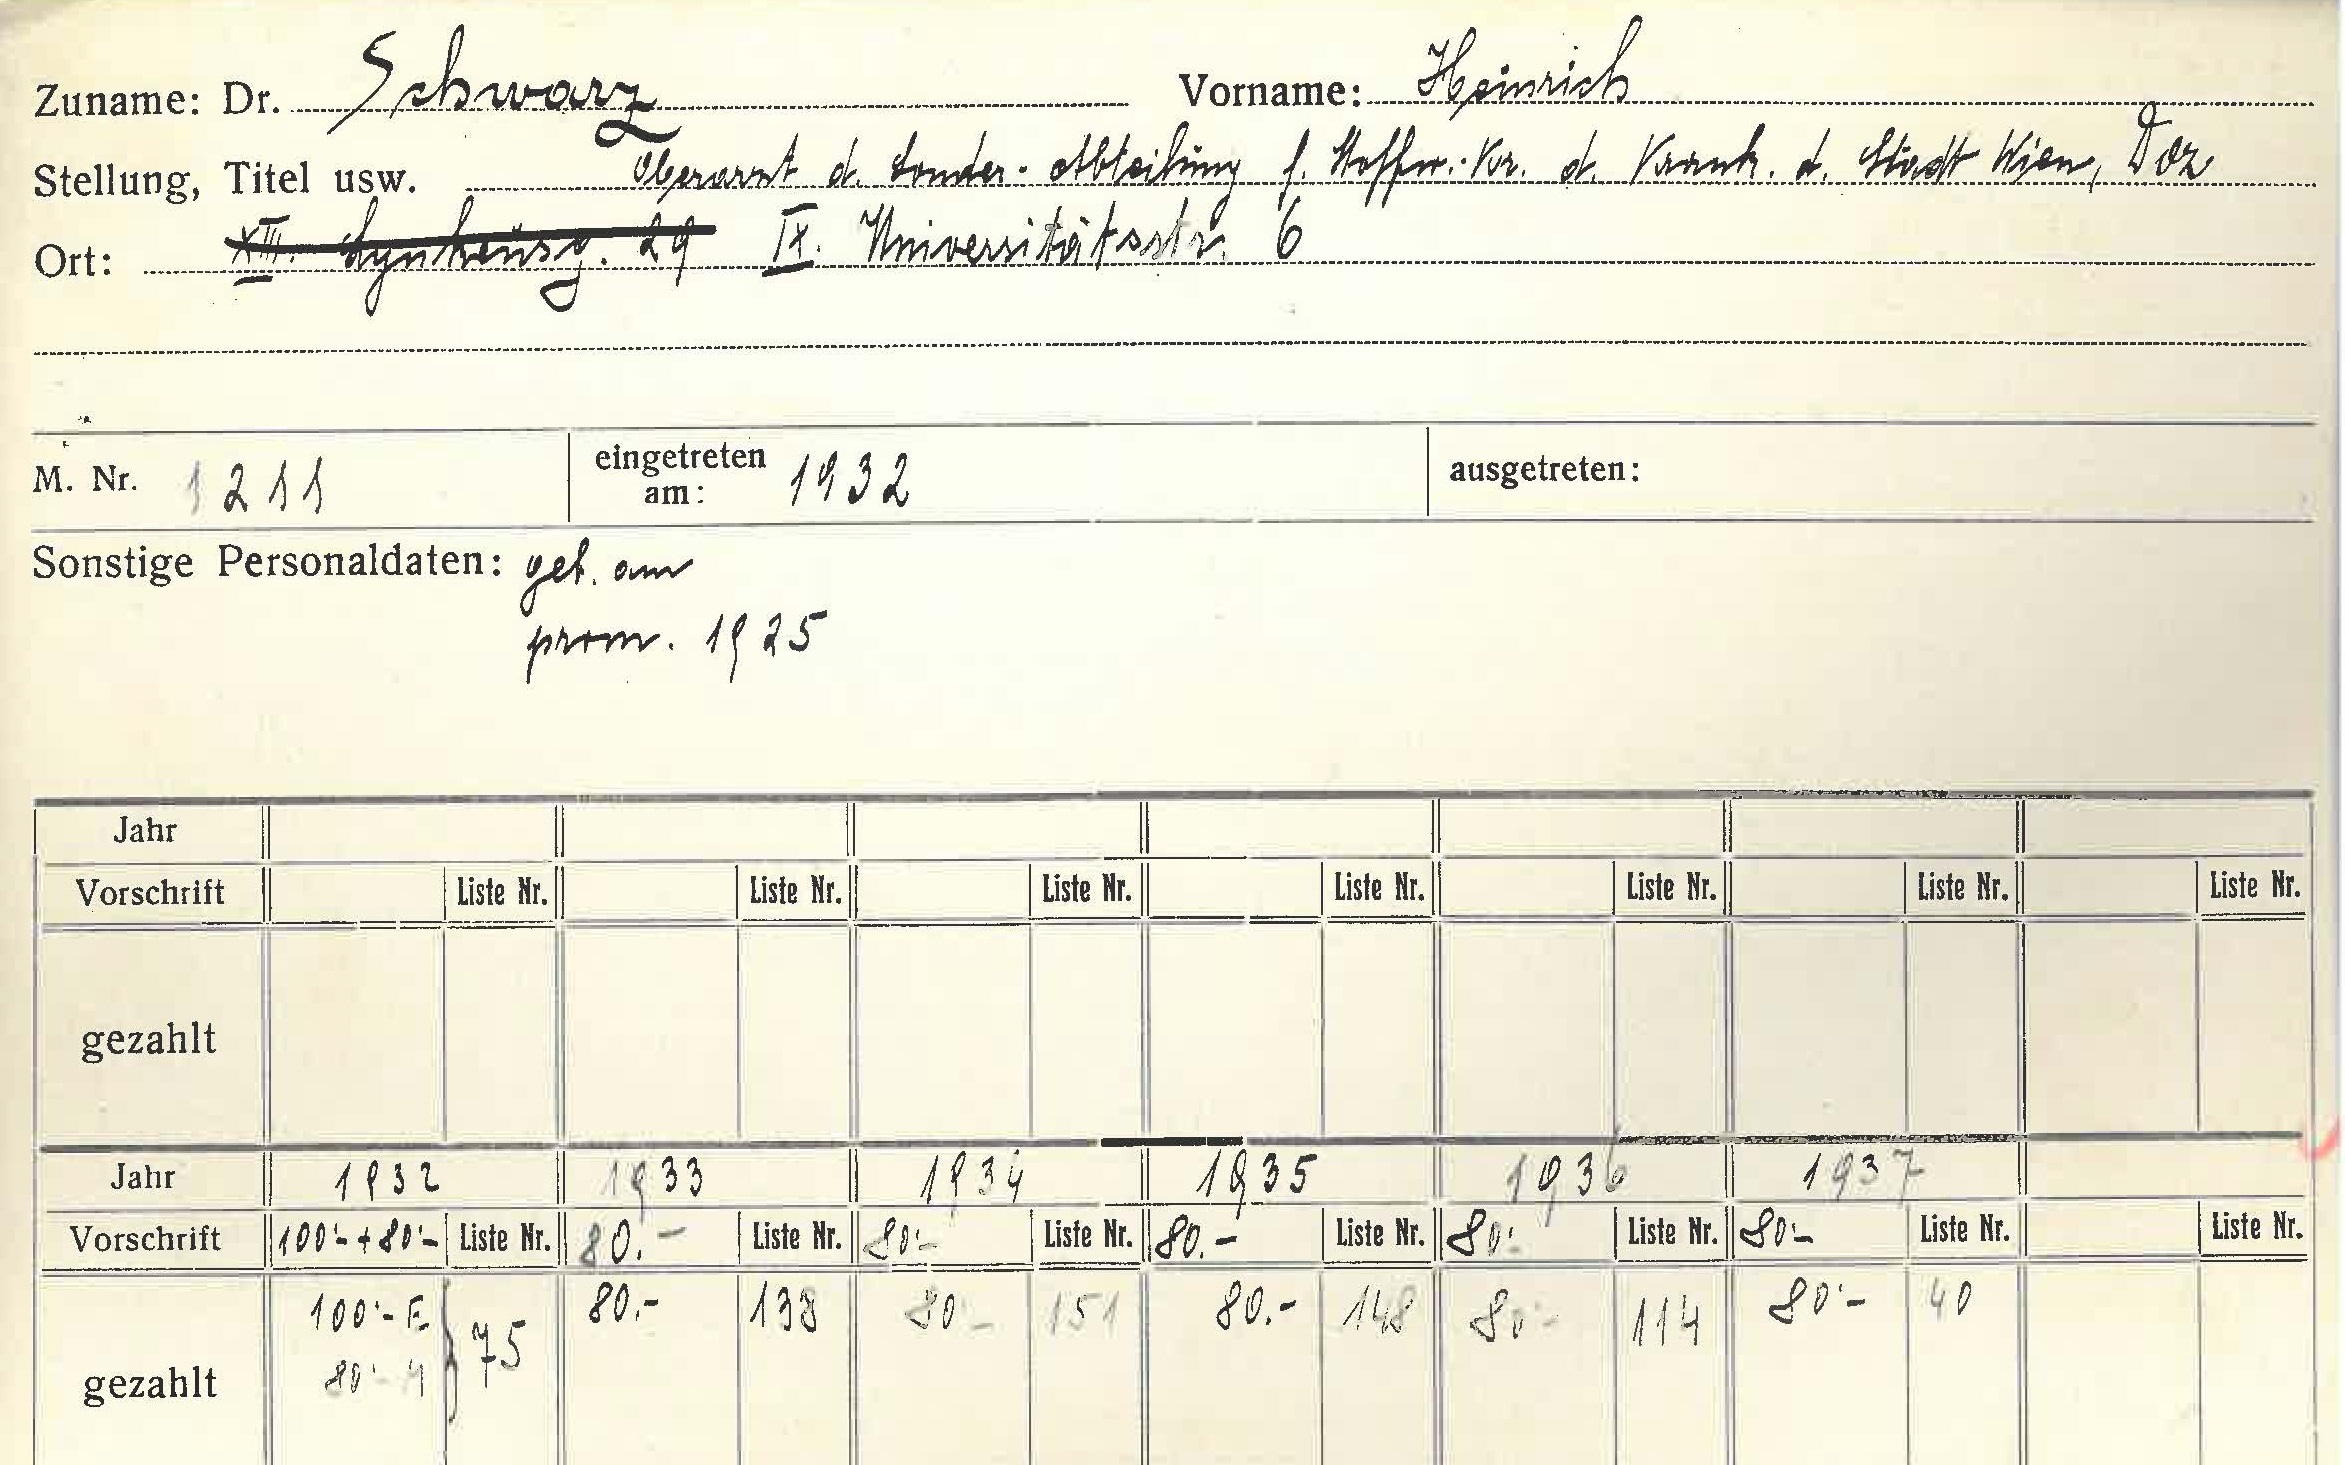 Zuname: Dr. Schwarz Vorname: Heinrich
Stellung, Titel usw. Oberarzt d. Sonder-Abteilung f. Stoffw.-Kr. d. Krank. d. Stadt Wien, Doz
Ort: XIII. 29 IX. Universitätsstr. 6
M. Nr. 1211 eingetreten am: 1932 ausgetreten:
Sonstige Personaldaten: geb. am
prom. 1925
Jahr
Vorschrift Liste Nr. Liste Nr. Liste Nr. Liste Nr. Liste Nr. Liste Nr. Liste Nr.
gezahlt
Jahr 1932 1933 1934 1935 1936 1937
Vorschrift 100·- + 80·- Liste Nr. 80.- Liste Nr. 80·- Liste Nr. 80.- Liste Nr. 80·- Liste Nr. 80·- Liste Nr. Liste Nr.
100·- E 75 80.- 138 80·- 151 80.- 148 80·- 114 80·- 40
gezahlt 80·- M